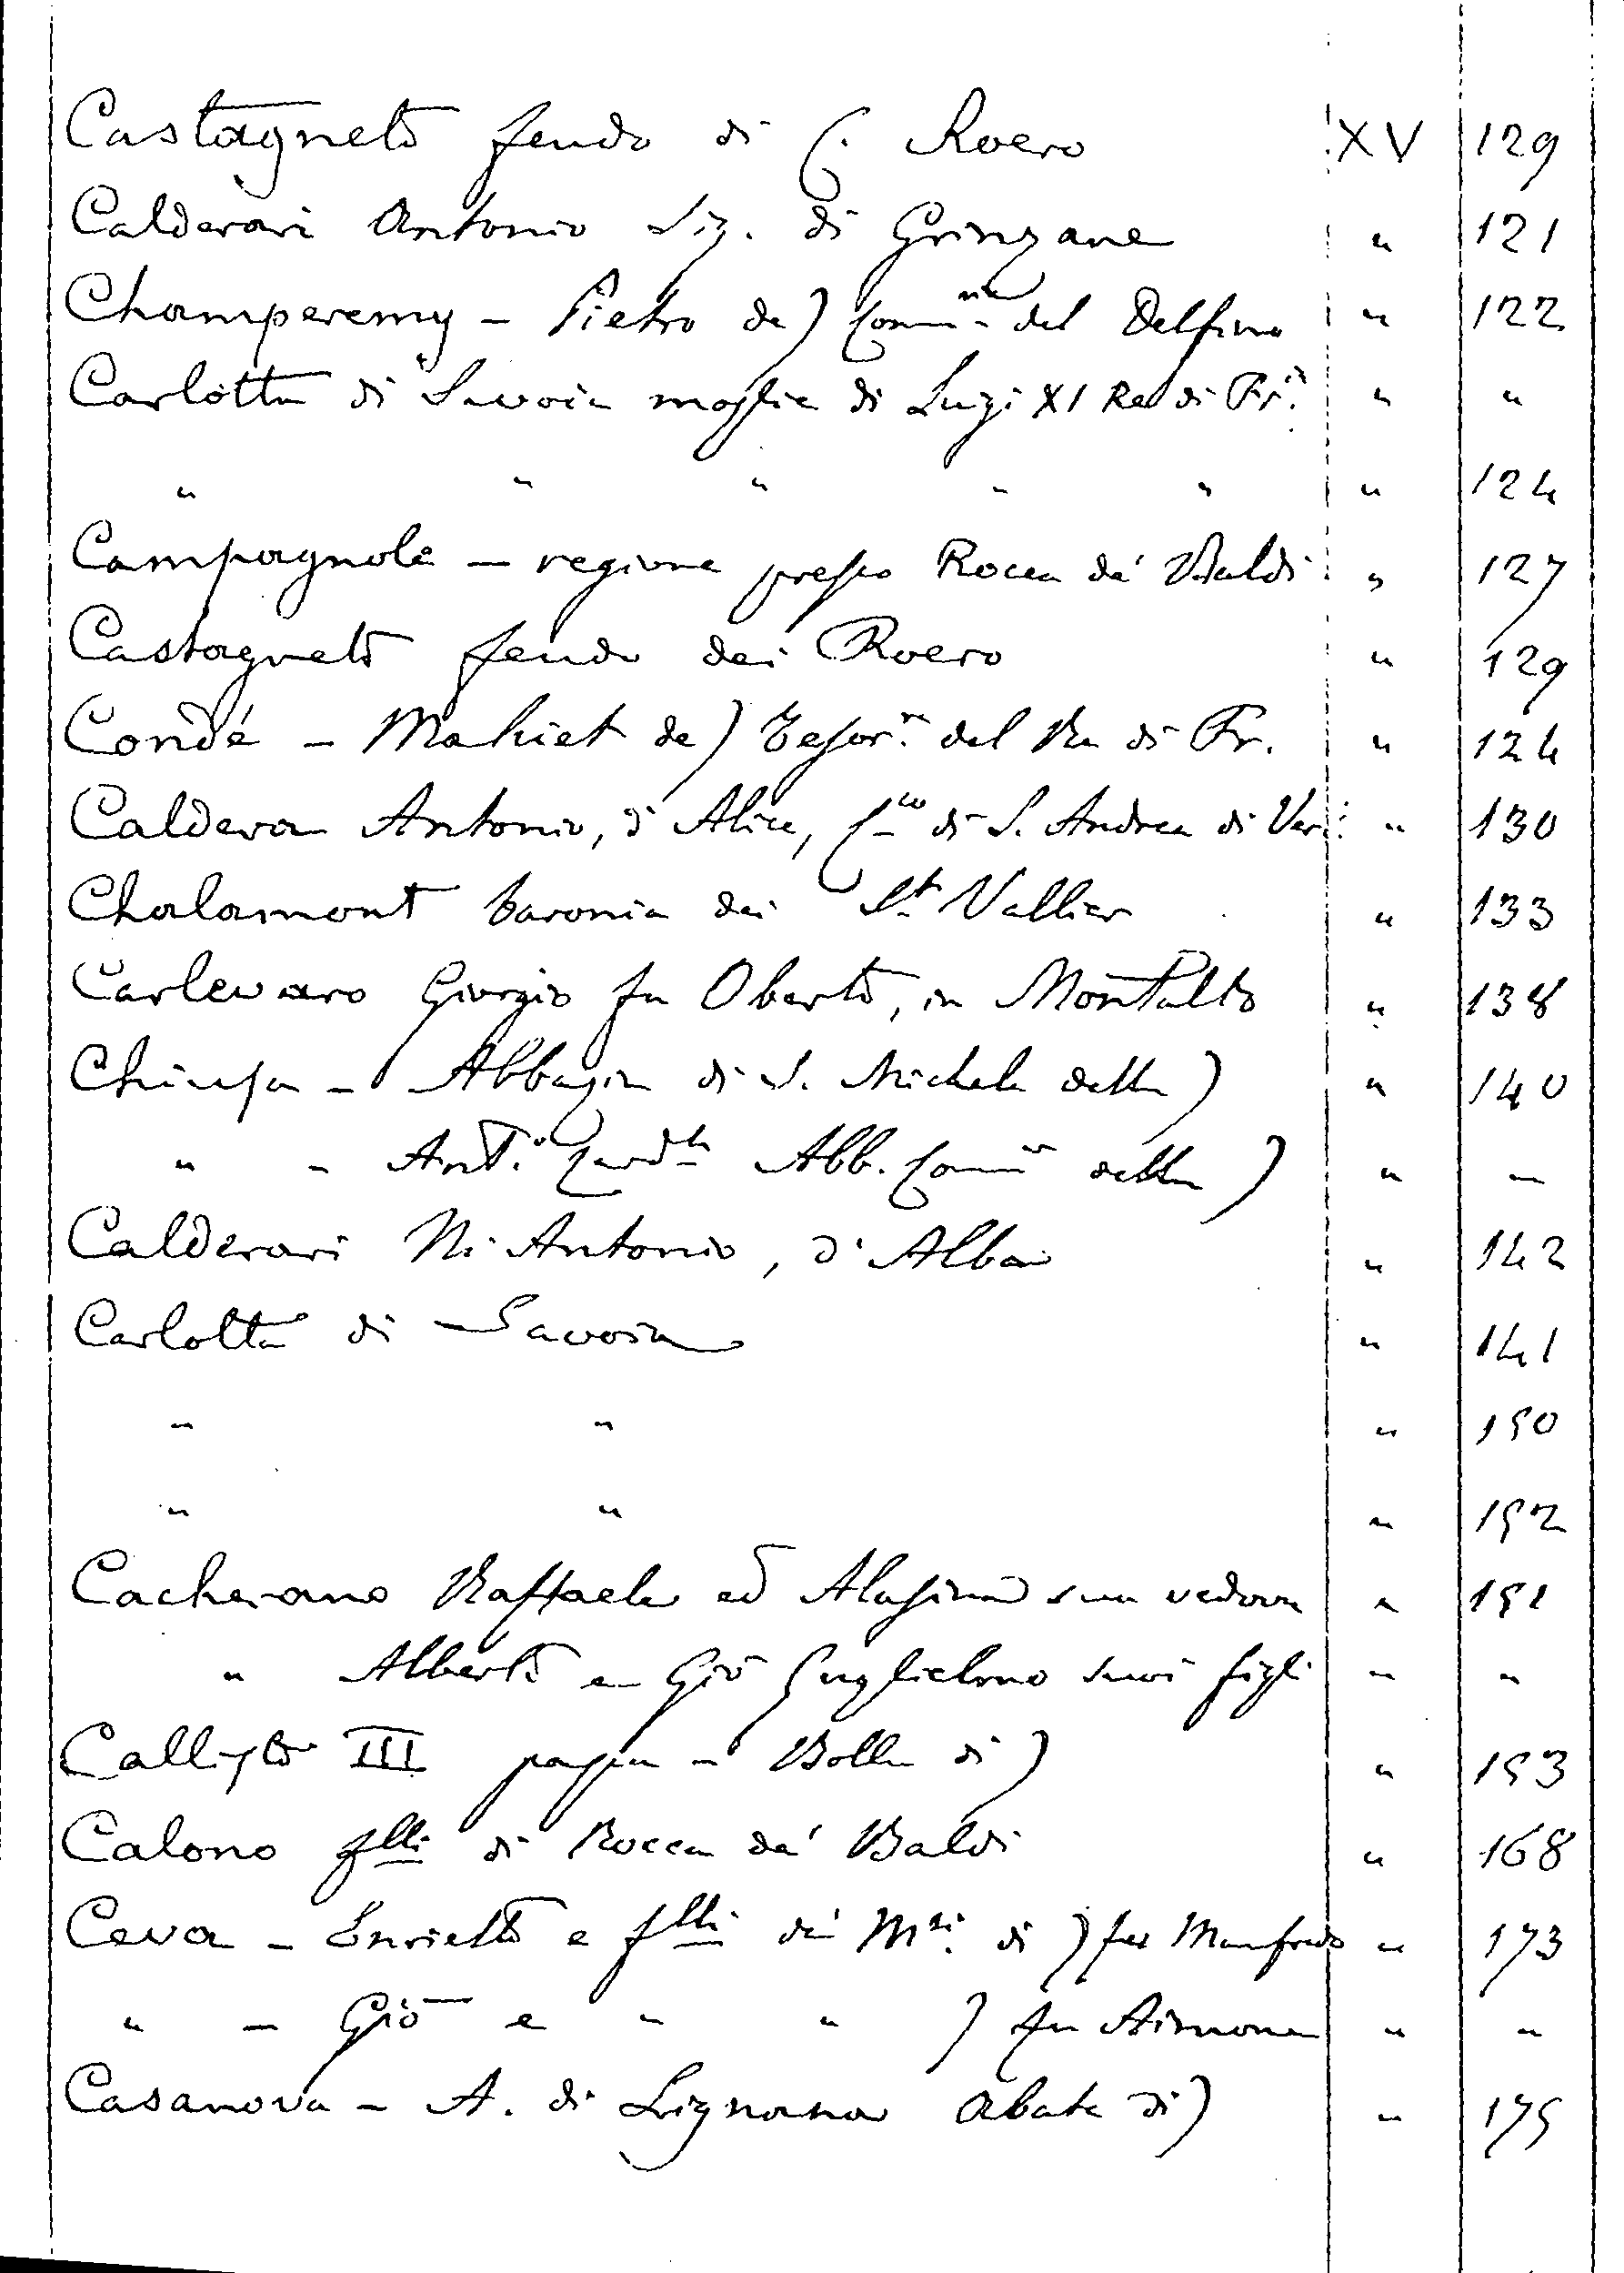 Castagneto feudo di C. Roero XV 129
Calderari Antonio Sig. di Grinzane " 121
Champeremy - Pietro de) Comm.rio del Delfino " 122
Carlotta di Savoia moglie di Luigi XI Re di Fr.a " "
" " " " " " 124
Campagnole - regione presso Rocca de' Baldi " 127
Castagneto feudo dei Roero " 129
Condé - Mahiet de) Tesor.e del Re di Fr. " 124
Caldera Antonio, d'Alice, C.co di S. Andrea di Verc. " 130
Chalamont baronia dei St Vallier " 133
Carlevaro Giorgio fu Oberto, in Montalto " 138
Chiusa - Abbazia di S. Michele della) " 140
" - Ant.o Card.le Abb. Com.rio della) " "
Calderari N. Antonio, d'Alba " 142
Carlotta di Savoia " 141
" " " 150
" " " 152
Cacherano Raffaele ed Alasina sua vedova " 151
" Alberto e Gio Guglielmo suoi figli " "
Callisto III papa - Bolla di) " 153
Calono flli di Rocca de' Baldi " 168
Ceva - Enrietto e flli dei M.si di) fu Manfredo " 173
" - Gio e " " ) fu Aimone " "
Casanova - A. di Lignana Abate di) " 175